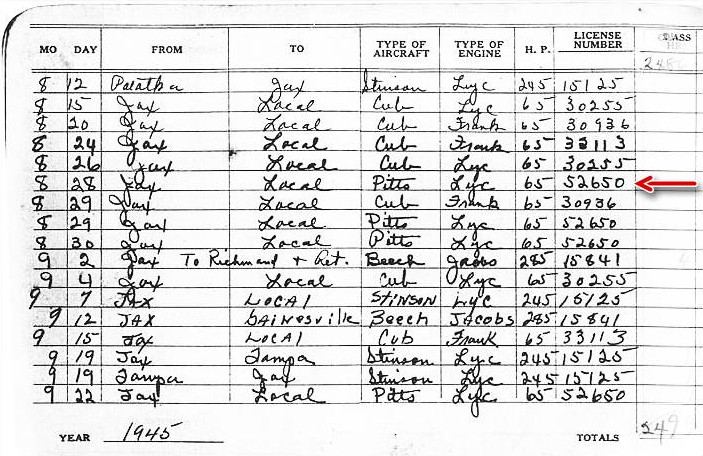 MO DAY FROM TO TYPE OF AIRCRAFT TYPE OF ENGINE H. P. LICENSE NUMBER CLASS
8 12 Palatka Jax Stinson Lyc 245 15125
8 15 Jax Local Cub Lyc 65 30255
8 20 Jax Local Cub Frank 65 30936
8 24 Jax Local Cub Frank 65 33113
8 26 Jax Local Cub Lyc 65 30255
8 28 Jax Local Pitts Lyc 65 52650
8 29 Jax Local Cub Frank 65 30936
8 29 Jax Local Pitts Lyc 65 52650
8 30 Jax Local Pitts Lyc 65 52650
9 2 Jax To Richmond + Ret. Beech Jacobs 285 15841
9 4 Jax Local Cub Lyc 65 30255
9 7 JAX LOCAL STINSON Lyc 245 15125
9 12 JAX GAINESville Beech JACOBS 285 15841
9 15 Jax LOCAL Cub Frank 65 33113
9 19 Jax Tampa Stinson Lyc 245 15125
9 19 Tampa Jax Stinson Lyc 245 15125
9 22 Jax Local Pitts Lyc 65 52650
YEAR 1945 TOTALS 249